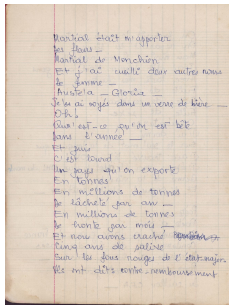 Martial était m'apporter
Ses fleurs
Martial de Monchien
Et j'ai cueilli deux autres noms
de femme
Austela _ Gloria _
Je les ai noyés dans un verre de bière
Oh!
Qu'est-ce qu'on est bête
Dans l'année _
Et puis
C'est lourd
Un pays qu'on exporte
En tonnes
En millions de tonnes
De lâcheté par an _
En millions de tonnes
De honte par mois _
Et nous avons craché
Cinq ans de salive
Sur les fous rouges de l'état major
Ils ont dits contre-remboursement